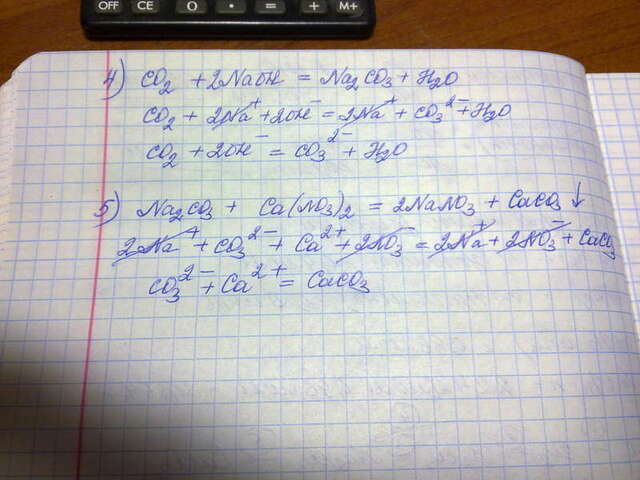 OFF CE 0 · = + M+
4) CO2 + 2NaOH = Na2CO3 + H2O
CO2 + 2Na⁺ + 2OH⁻ = 2Na⁺ + CO3²⁻ + H2O
CO2 + 2OH⁻ = CO3²⁻ + H2O
5) Na2CO3 + Ca(NO3)2 = 2NaNO3 + CaCO3↓
2Na⁺ + CO3²⁻ + Ca²⁺ + 2NO3⁻ = 2Na⁺ + 2NO3⁻ + CaCO3
CO3²⁻ + Ca²⁺ = CaCO3